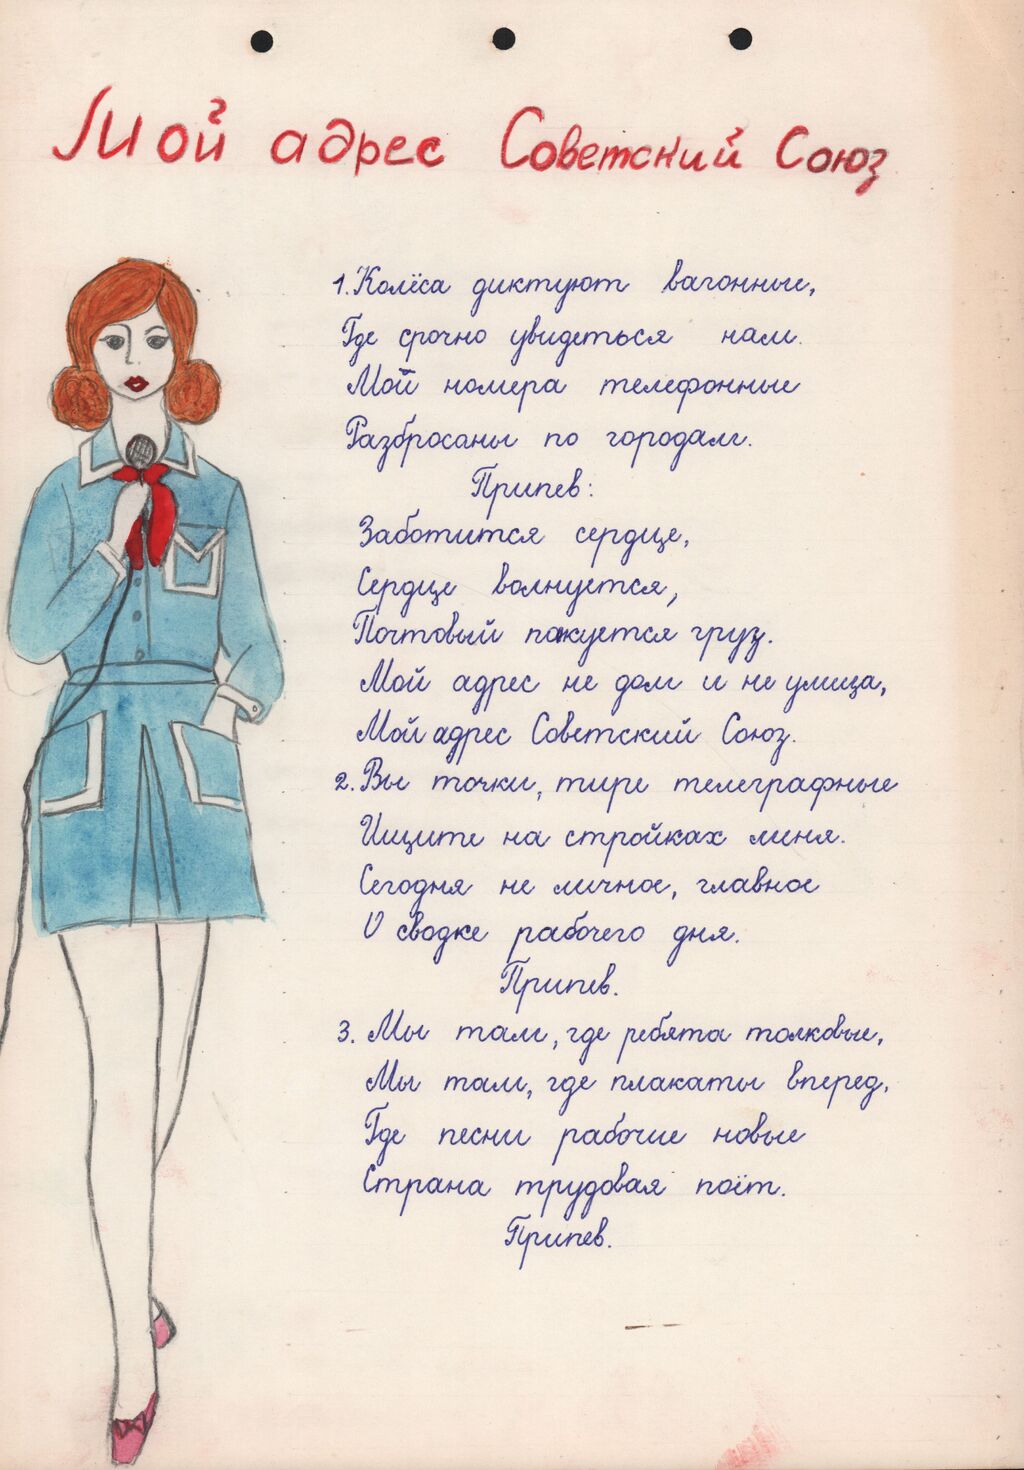 Мой адрес Советский Союз
1. Колёса диктуют вагонные,
Где срочно увидеться нам.
Мой номера телефонные
Разбросаны по городам.
Припев:
Заботится сердце,
Сердце волнуется,
Почтовый пакуется груз.
Мой адрес не дом и не улица,
Мой адрес Советский Союз.
2. Вы точки, тире телеграфные
Ищите на стройках меня.
Сегодня не личное, главное
О сводке рабочего дня.
Припев.
3. Мы там, где ребята толковые,
Мы там, где плакаты вперед,
Где песни рабочие новые
Страна трудовая поёт.
Припев.